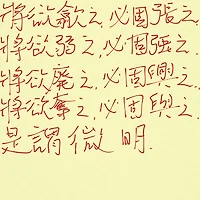 將欲歙之，必固張之，
將欲弱之，必固強之，
將欲廢之，必固興之，
將欲奪之，必固與之，
是謂微明.